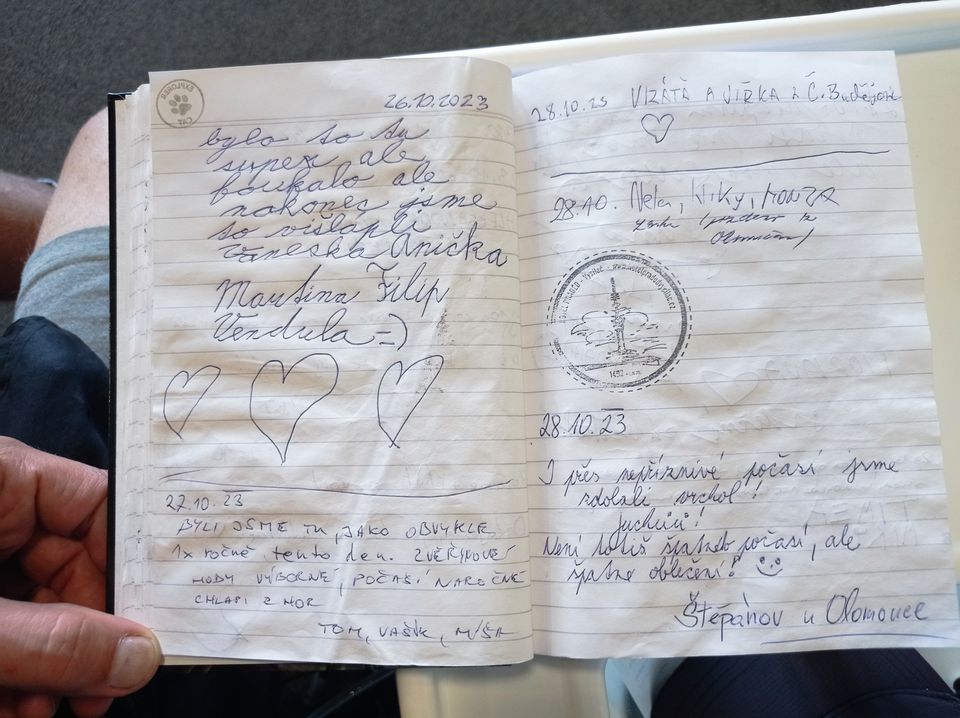 EXPLORER
CAT
26.10.2023
bylo to tu
super ale
foukalo ale
nakonec jsme
to višlapli
Vaneska Anička
Martina Filip
Vendula =)
27.10.23
BYLI JSME TU, JAKO OBVYKLE
1x ročně tento den. ZVĚŘINOVÉ
HODY VÝBORNÉ, POČASÍ NÁROČNÉ
CHLAPI Z HOR
TOM, VAŠÍK, MÍŠA
28.10.23 A JIŘKA Z Č. Budějovic
28.10. Niky, HONZA
1492 m n.m.
28.10.23
I přes nepříznivé počasí jsme
zdolali vrchol!
juchůů!
Není totiž špatné počasí, ale
špatné oblečení!
Štěpánov u Olomouce